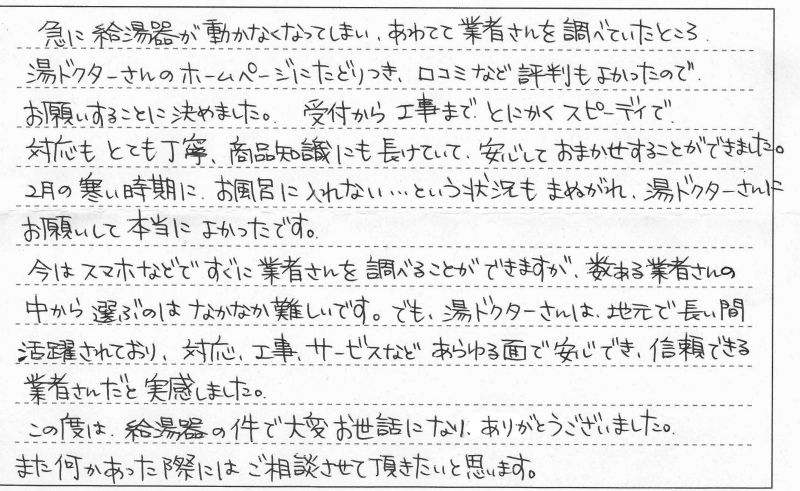 急に給湯器が動かなくなってしまい、あわてて業者さんを調べていたところ、
湯ドクターさんのホームページにたどりつき、口コミなど評判もよかったので、
お願いすることに決めました。 受付から工事まで、とにかくスピーディで、
対応もとても丁寧、商品知識にも長けていて、安心しておまかせすることができました。
2月の寒い時期に、お風呂に入れない…という状況もまぬがれ、湯ドクターさんに
お願いして本当によかったです。
今はスマホなどですぐに業者さんを調べることができますが、数ある業者さんの
中から選ぶのはなかなか難しいです。でも、湯ドクターさんは、地元で長い間
活躍されており、対応、工事、サービスなどあらゆる面で安心でき、信頼できる
業者さんだと実感しました。
この度は、給湯器の件で大変お世話になり、ありがとうございました。
また何かあった際にはご相談させて頂きたいと思います。